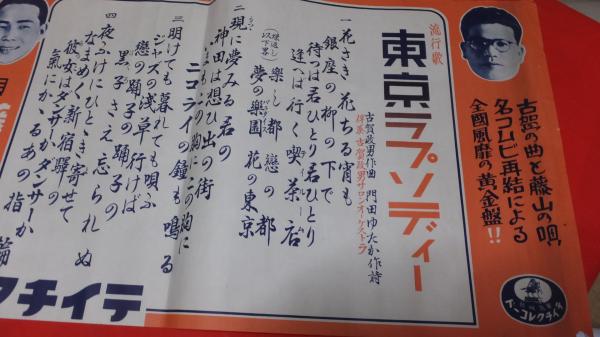 古賀の曲と藤山の唄、
名コムビ再結による
全國風靡の黄金盤!!
流行歌
東京ラプソディー
古賀政男作曲 門田ゆたか作詩
伴奏 古賀政男サロンオーケストラ
一 花さき花ちる宵も
銀座の柳の下で
待つは君ひとり君ひとり
逢へば行く喫茶店
(繰返し以下等)
樂し都 戀の都
夢の樂園 花の東京
二 現に夢みる君の
神田は想ひ出の街
いまもこの胸にこの胸に
ニコライの鐘も鳴る
三 明けても暮れても唄ふ
ジャズの淺草行けば
戀の踊子の踊子の
黒子さえ忘られぬ
四 夜ふけにひととき寄せて
なまめく新宿驛の
彼女はダンサーかダンサーか
氣にかゝるあの指輪
テイチク
テイチクレコード